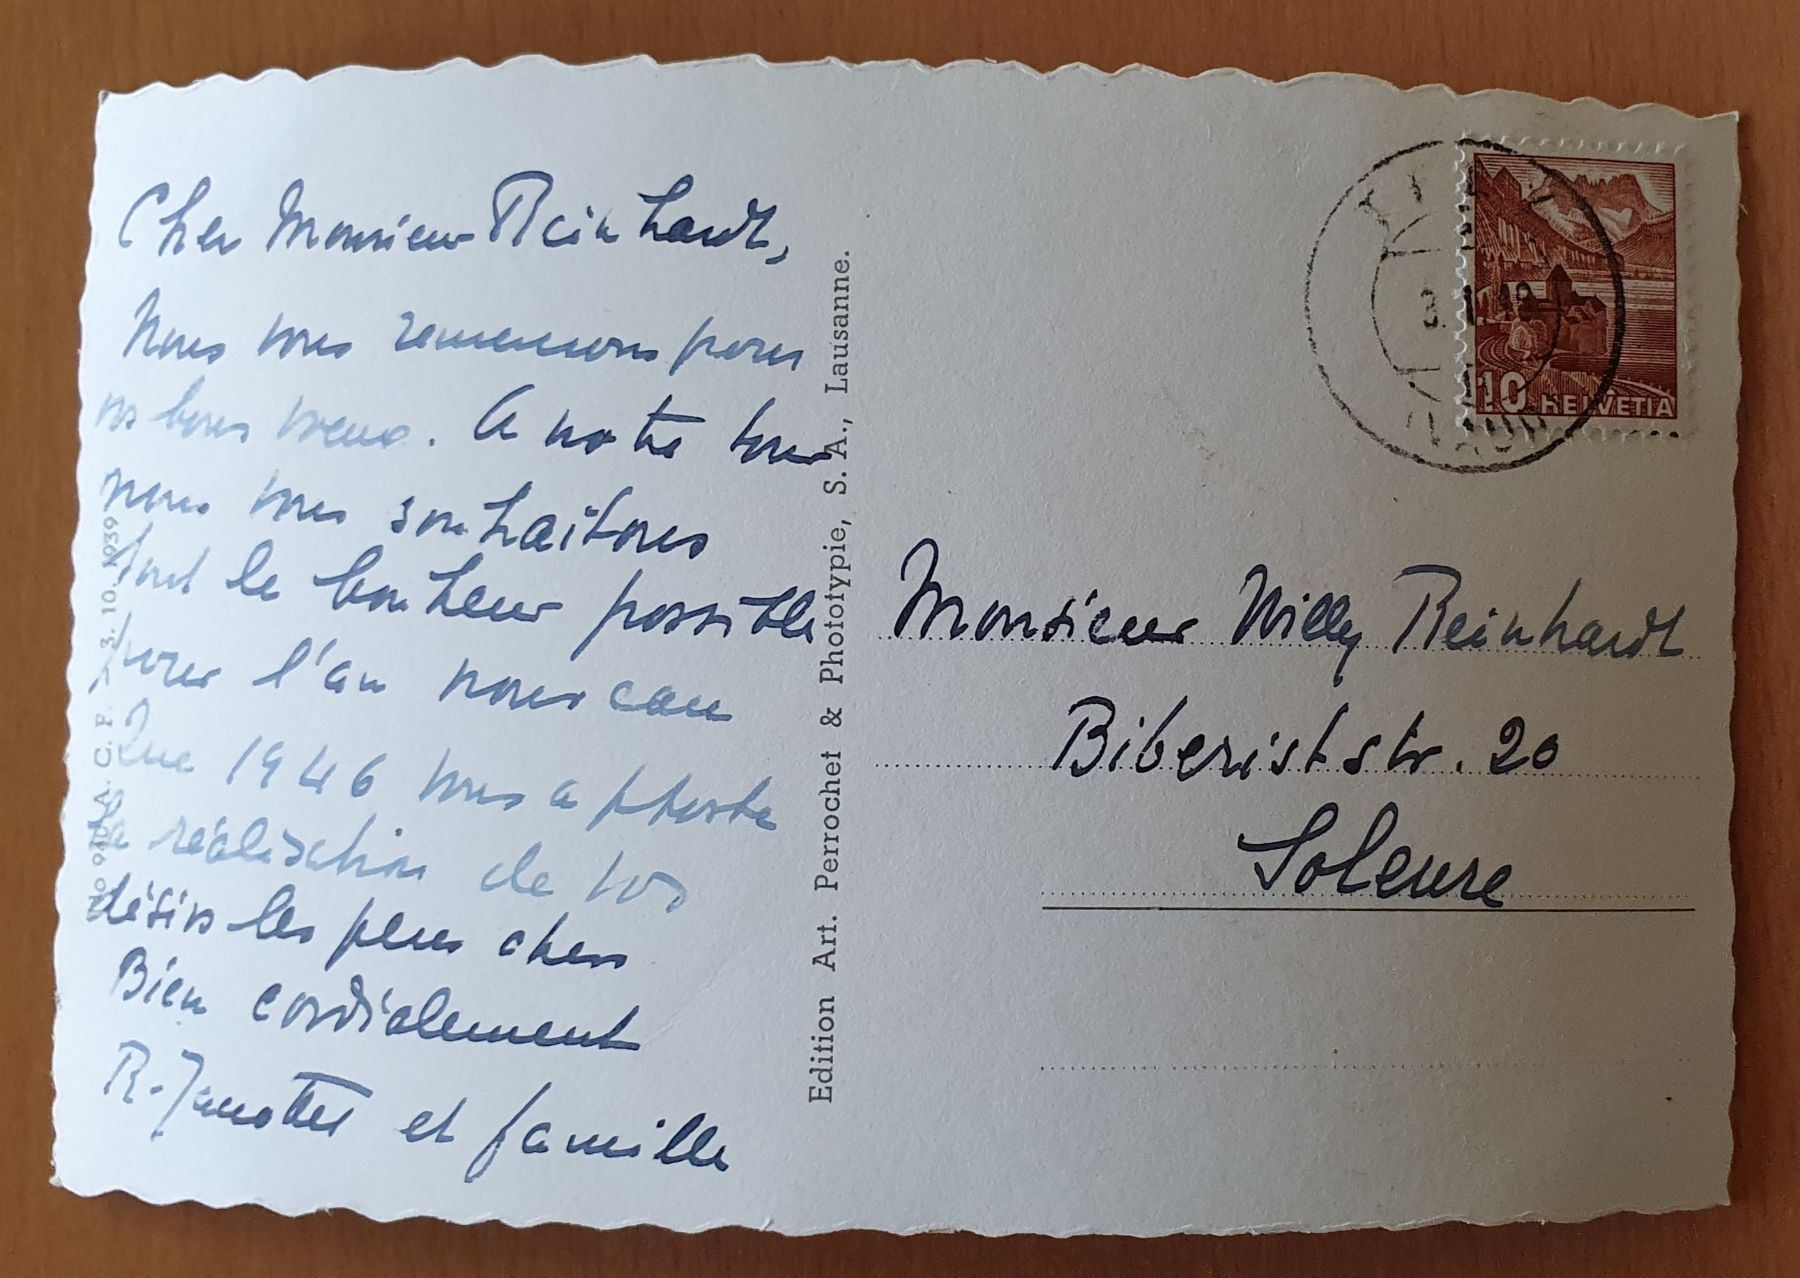 Cher Monsieur Reinhardt,
Nous vous remercions pour
vos bons voeux. A notre tour
nous vous souhaitons
tout le bonheur possible
pour l'an nouveau
Que 1946 vous apporte
la réalisation de vos
désirs les plus chers
Bien cordialement
R. et famille
A. C. F. 3. 10. 1939
Edition Art. Perrochet & Phototypie, S. A., Lausanne.
10 HELVETIA
Monsieur Willy Reinhardt
Biberiststr. 20
Soleure